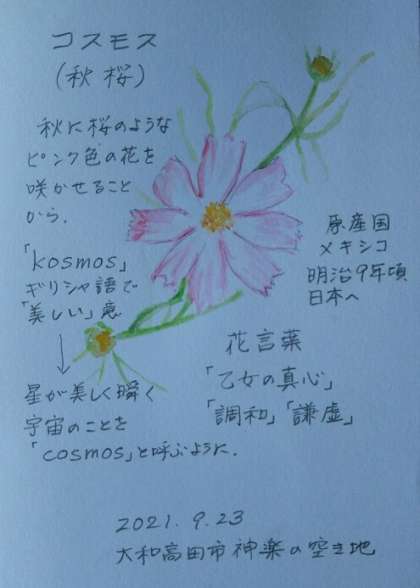 コスモス
(秋桜)
秋に桜のような
ピンク色の花を
咲かせること
から.
「kosmos」
ギリシャ語で
「美しい」意
↓
星が美しく瞬く
宇宙のことを
「cosmos」と呼ぶように.
原産国
メキシコ
明治9年頃
日本へ
花言葉
「乙女の真心」
「調和」「謙虚」
2021. 9. 23
大和高田市神楽の空き地